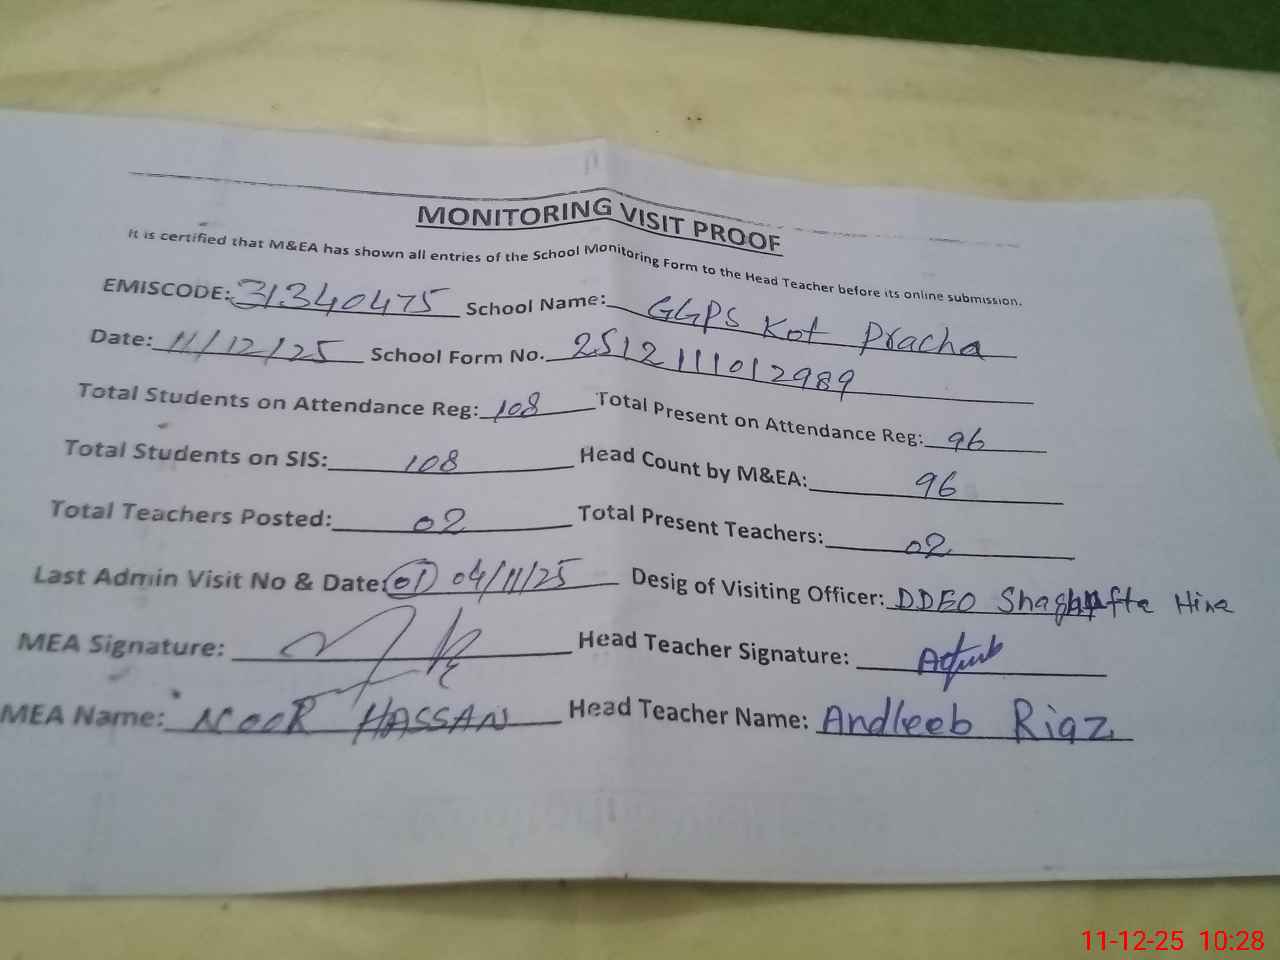 MONITORING VISIT PROOF
It is certified that M&EA has shown all entries of the School Monitoring Form to the Head Teacher before its online submission.
EMISCODE: 31340475 School Name: GGPS Kot Pracha
Date: 11/12/25 School Form No. 2512111012989
Total Students on Attendance Reg: 108 Total Present on Attendance Reg: 96
Total Students on SIS: 108 Head Count by M&EA: 96
Total Teachers Posted: 02 Total Present Teachers: 02
Last Admin Visit No & Date: 01 04/11/25 Desig of Visiting Officer: DDEO Shagufta Hina
MEA Signature: Head Teacher Signature:
MEA Name: NOOR HASSAN Head Teacher Name: Andleeb Riaz
11-12-25 10:28